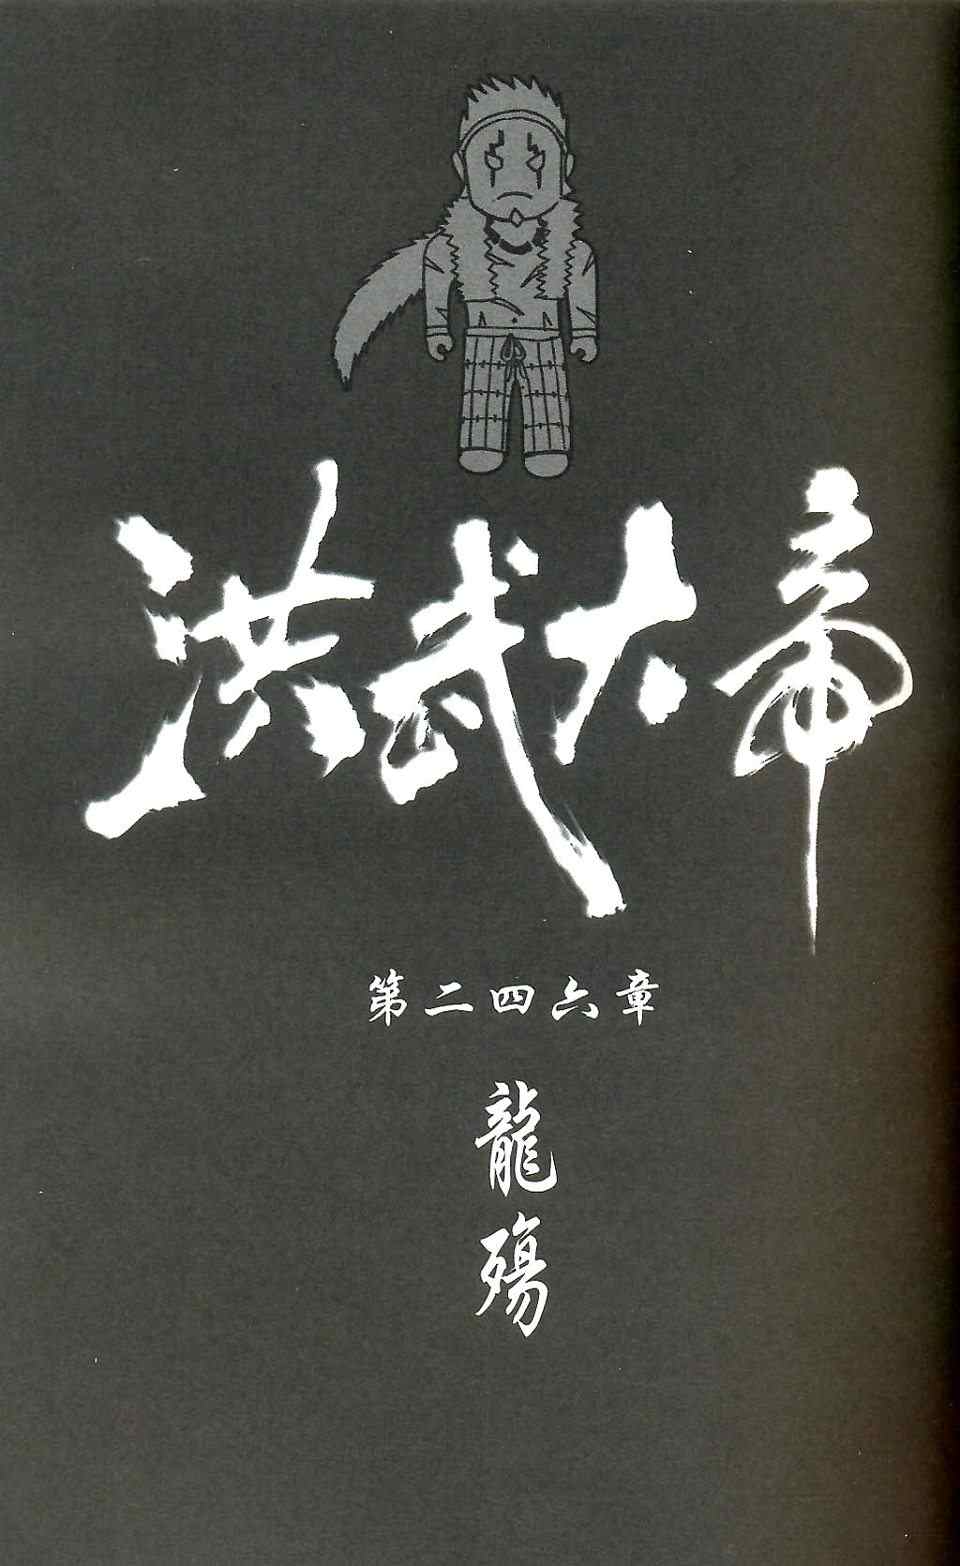 洪武大帝
第二四六章
龍殤